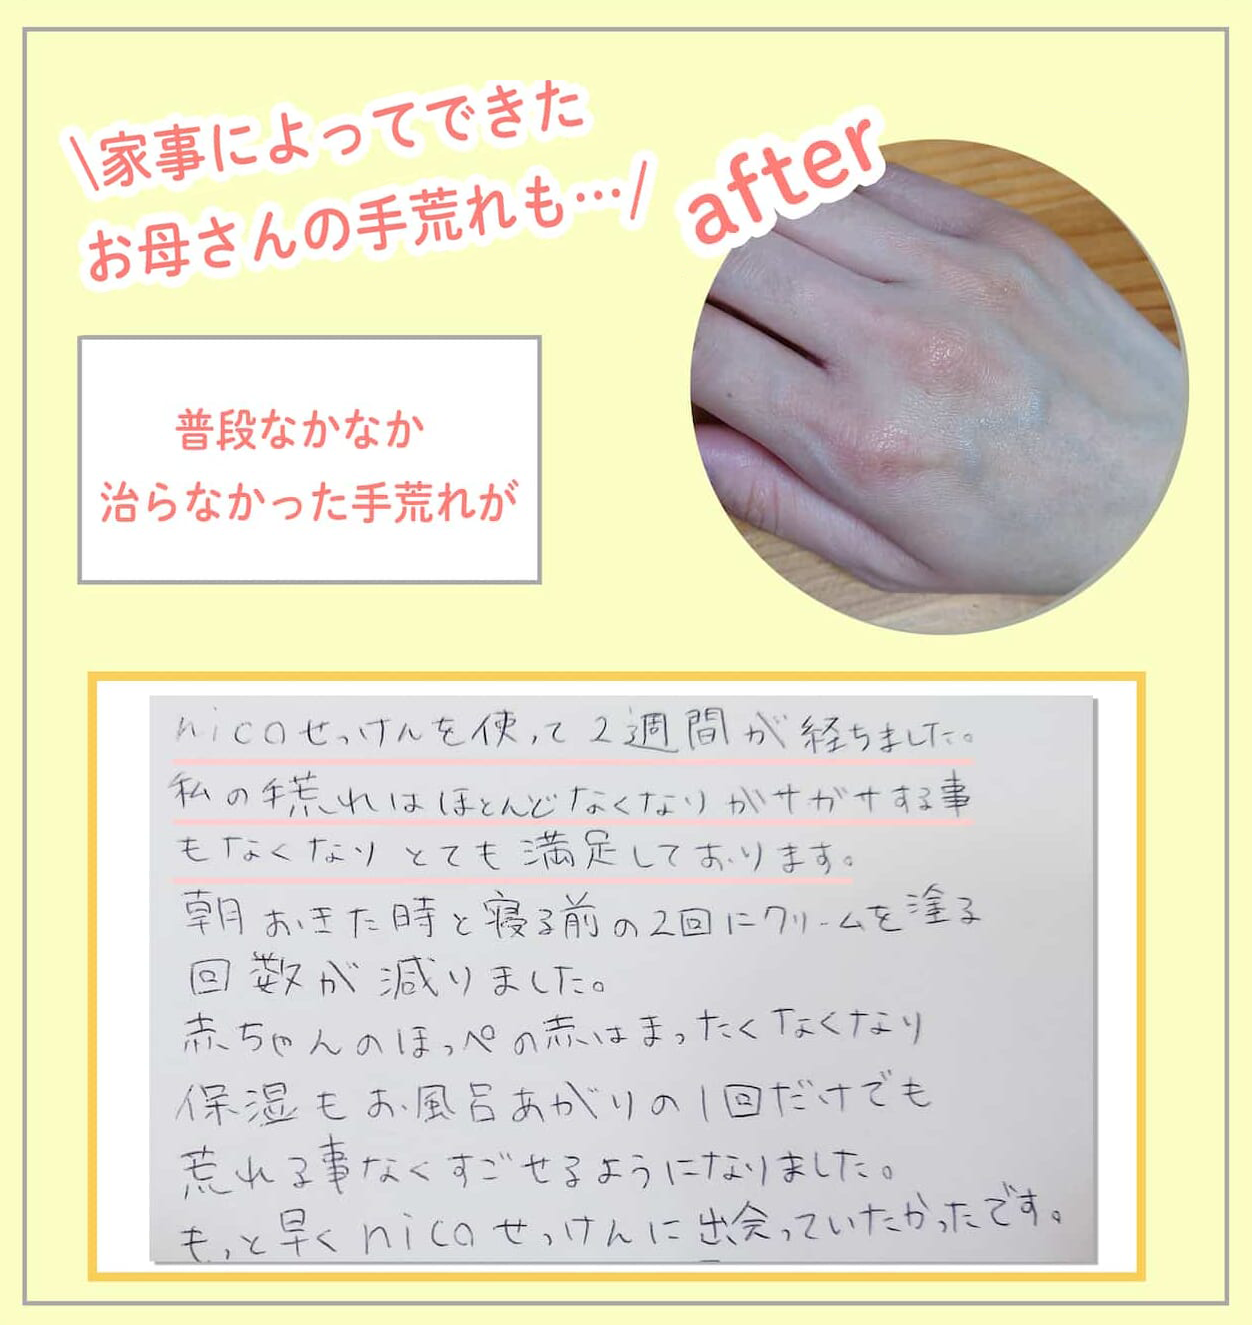 \家事によってできた
お母さんの手荒れも…/
after
普段なかなか
治らなかった手荒れが
nicoせっけんを使って2週間が経ちました。
私の手荒れはほとんどなくなりガサガサする事
もなくなりとても満足しております。
朝おきた時と寝る前の2回にクリームを塗る
回数が減りました。
赤ちゃんのほっぺの赤はまったくなくなり
保湿もお風呂あがりの1回だけでも
荒れる事なくすごせるようになりました。
もっと早くnicoせっけんに出会っていたかったです。